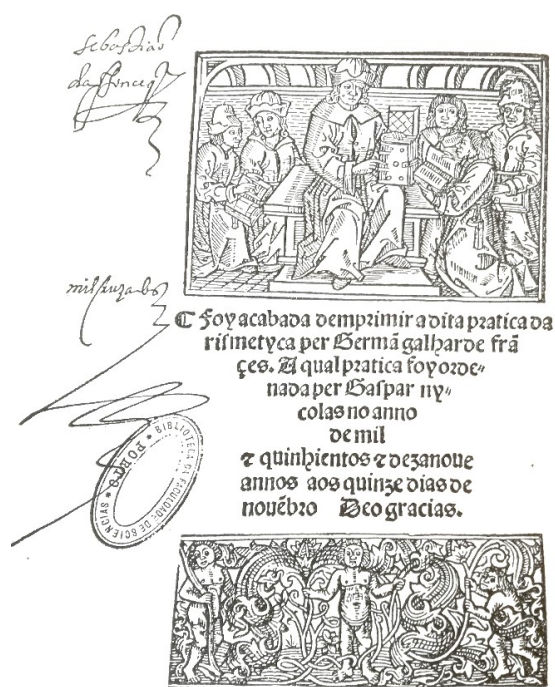 sebastiaõ
da fonceq
mil cruzados
¶ Foy acabada demprimir a dita pratica da
rismetyca per Germã galharde frã
çes. A qual pratica foy orde-
nada per Gaspar ny-
colas no anno
de mil
⁊ quinhientos ⁊ dezanoue
annos aos quinze dias de
nouẽbro Deo gracias.
BIBLIOTECA DA FACULDADE DE SCIENCIAS * PORTO *